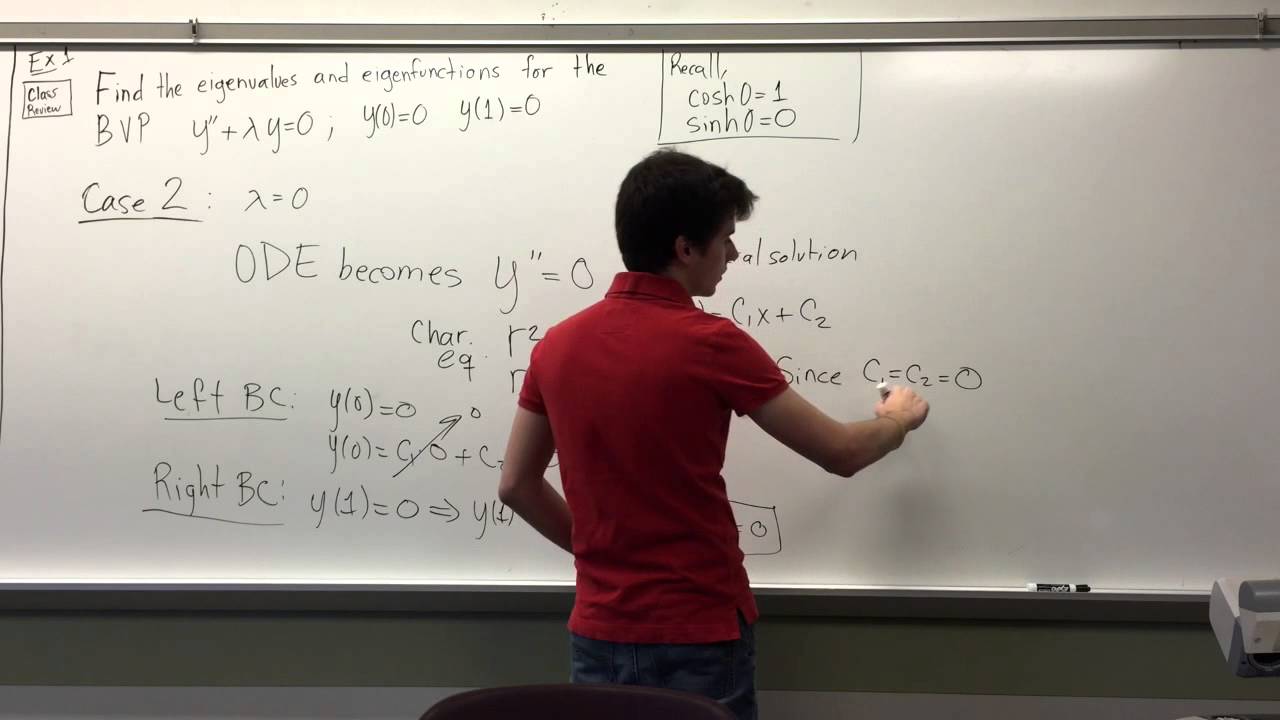 Ex 1
Class Review
Find the eigenvalues and eigenfunctions for the
BVP y'' + λy = 0 ; y(0)=0 y(1)=0
Recall,
cosh 0 = 1
sinh 0 = 0
Case 2 : λ = 0
ODE becomes y'' = 0
Char. eq. r²
r
al solution
= C₁x + C₂
Since C₁ = C₂ = 0
Left BC: y(0) = 0
y(0) = C₁ 0 + C₂ 0
Right BC: y(1) = 0 ⇒ y(1)
= 0
EXPO